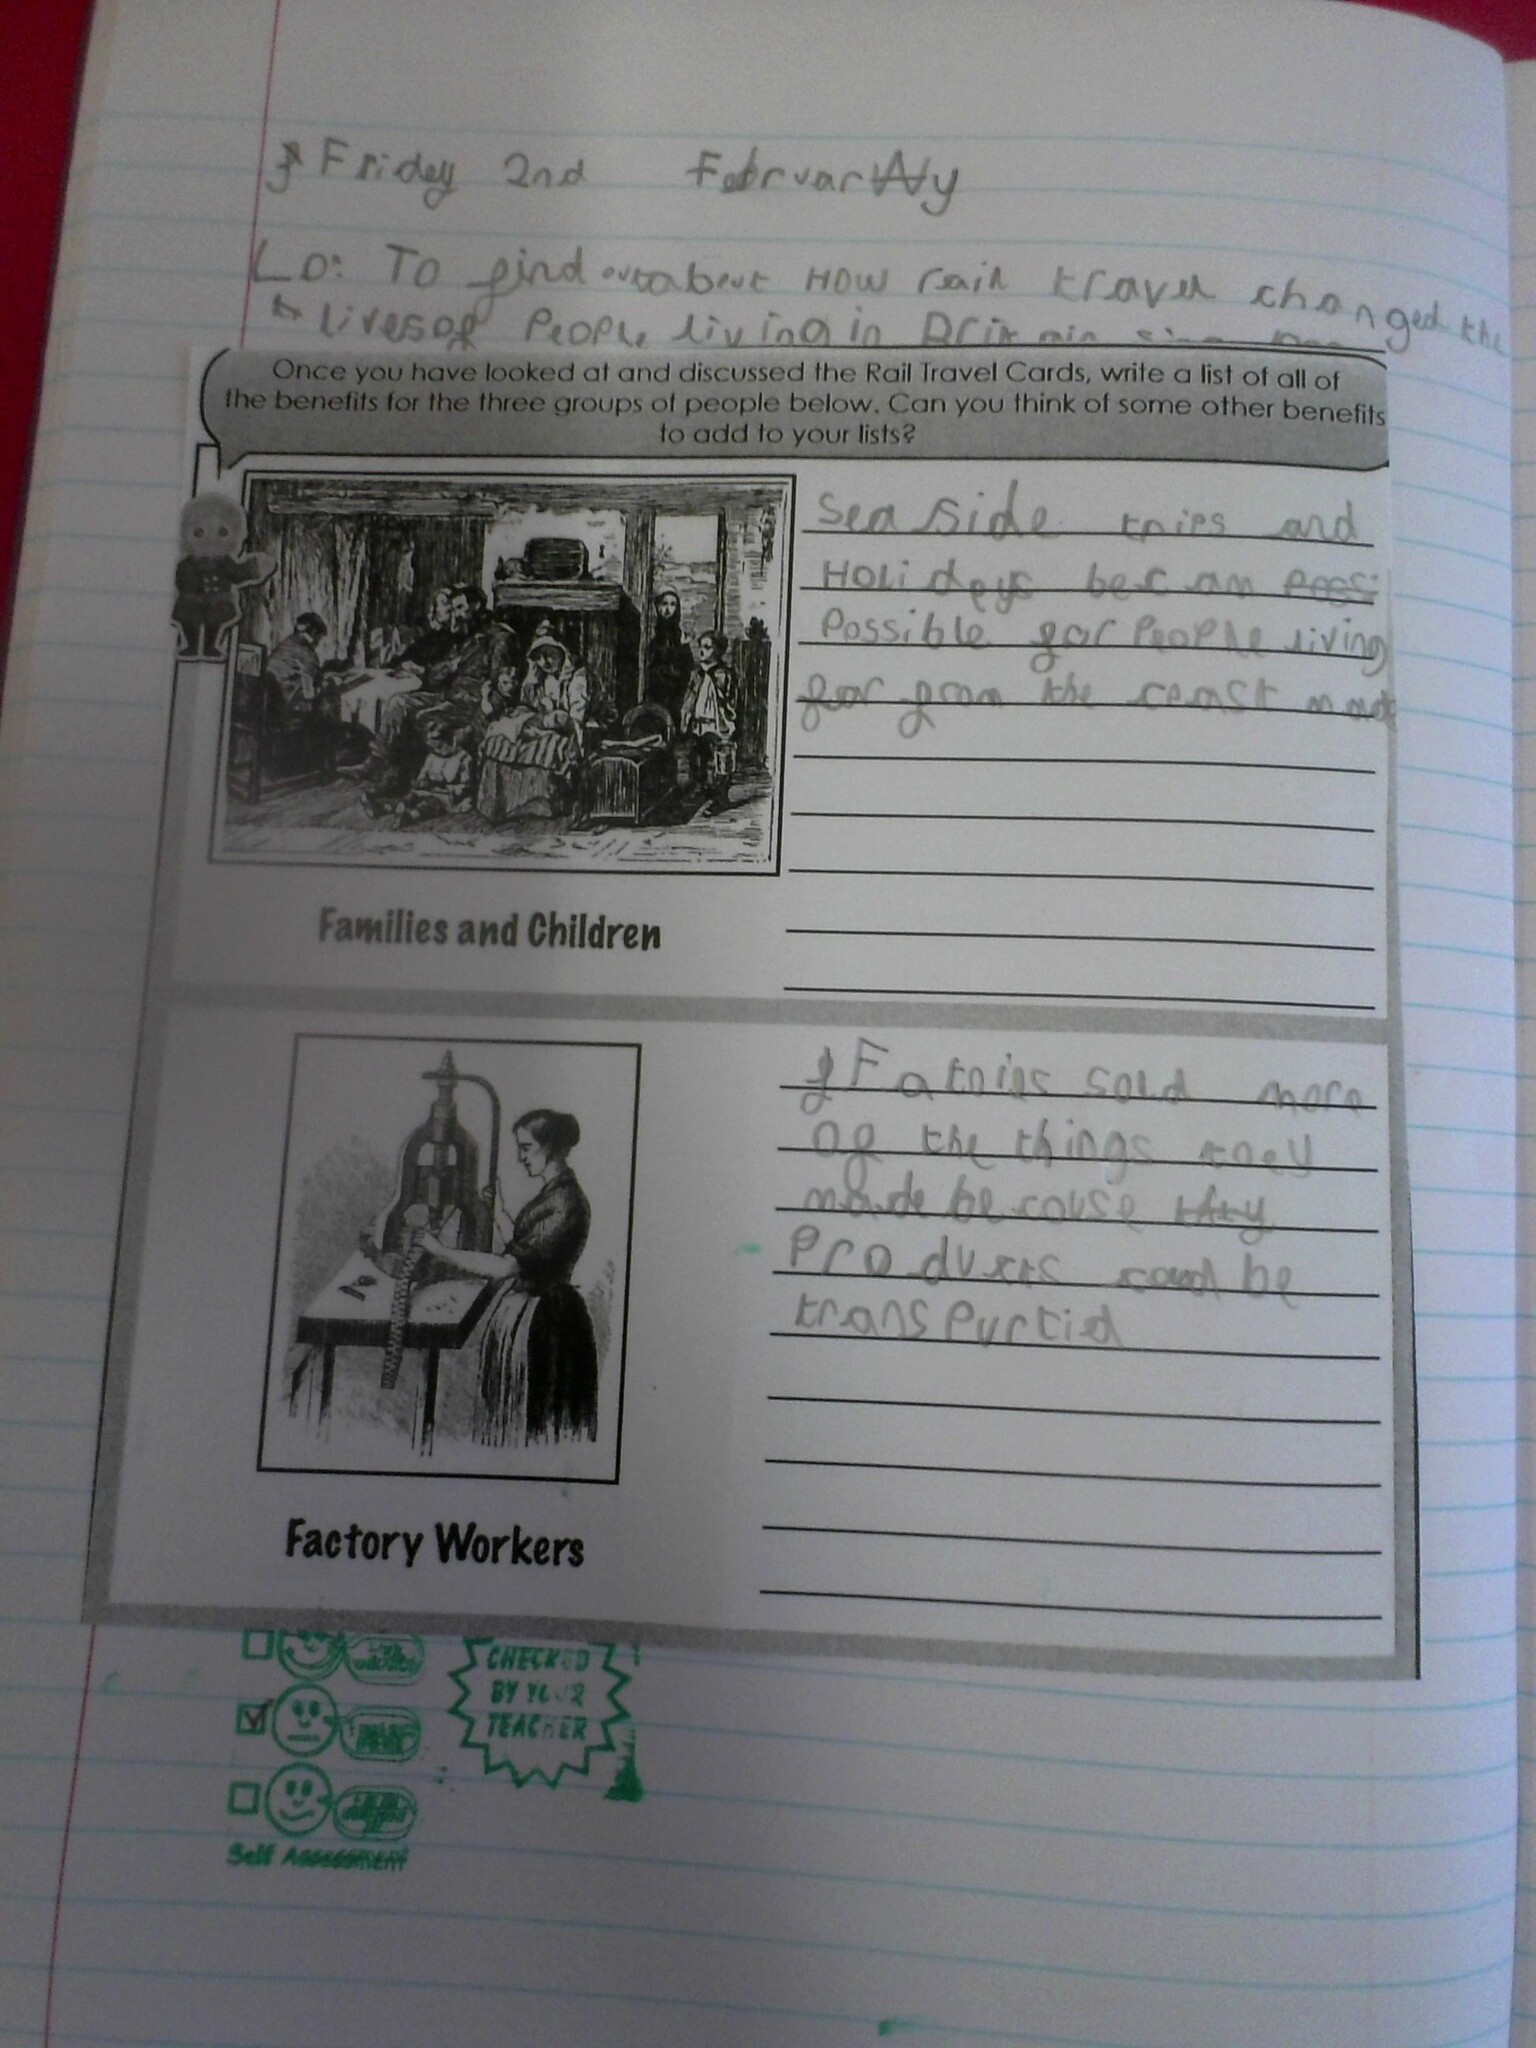 Friday 2nd February
Lo: To find out about How rail travel changed the
lives of People living in Britain
Once you have looked at and discussed the Rail Travel Cards, write a list of all of
the benefits for the three groups of people below. Can you think of some other benefits
to add to your lists?
Sea side trips and
Holideys becam possi
Possible for People living
far from the coast
Families and Children
Fatoies sold more
of the things they
made becouse they
Products coud be
transpurtied
Factory Workers
CHECKED
BY YOUR
TEACHER
Self Assessment